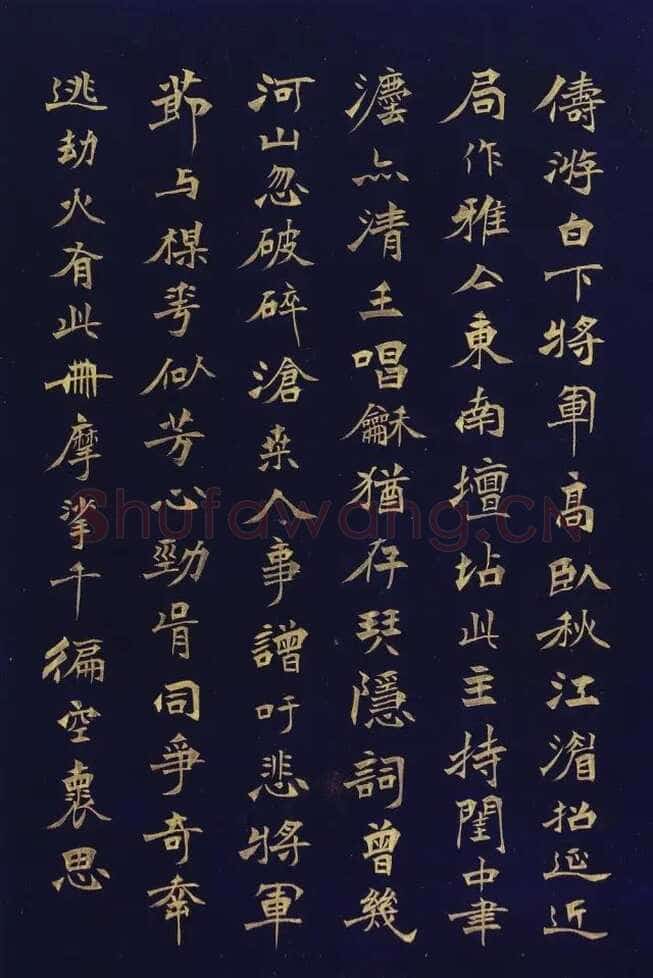 儔游白下將軍高臥秋江湄招延近
局作雅亼東南壇坫此主持閨中畫
灋亦清王唱龢猶存琴隱詞曾幾
河山忽破碎滄桑人事譄吁悲將軍
節与楳華似芳心勁肯同爭奇幸
逃劫火有此冊摩挲千徧空褱思
Shufawang.CN